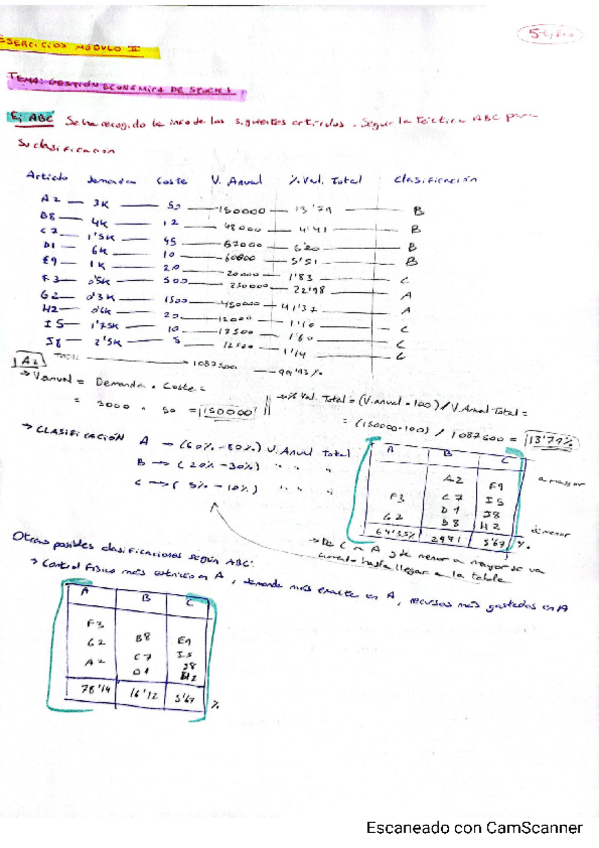 EJERCICIOS MÓDULO II
TEMA: GESTIÓN ECONÓMICA DE STOCKS
Ej ABC Se ha recogido la info de los siguientes artículos. Seguir la técnica ABC para
su clasificación
Artículo Demanda Coste V. Anual % Val. Total Clasificación
A2 — 3K — 50 — 150000 — 13'79 — B
B8 — 4K — 12 — 48000 — 4'41 — B
C7 — 1'5K — 45 — 67000 — 6'20 — B
D1 — 6K — 10 — 60000 — 5'51 — B
E9 — 1K — 20 — 20000 — 1'83 — C
F3 — 0'5K — 500 — 250000 — 22'98 — A
G2 — 0'3K — 1500 — 450000 — 41'37 — A
H2 — 0'6K — 20 — 12000 — 1'10 — C
I5 — 1'75K — 10 — 17500 — 1'60 — C
J8 — 2'5K — 5 — 12500 — 1'14 — C
TOTAL — 1087500 — 99'93 %
A2
→ V.anual = Demanda · Coste =
= 3000 · 50 = 150000
→ % Val. Total = (V.anual · 100) / V.Anual Total =
= (150000·100) / 1087500 = 13'79%
→ CLASIFICACIÓN A → (60% - 80%) V. Anual Total
B → (20% - 30%) " " "
C → (5% - 10%) " " "
A B C
A2 E9
F3 C7 I5
G2 D1 J8
B8 H2
64'35% 29'91 5'67 %
a mayor
de menor
→ De C a A y de menor a mayor se va
hasta llegar a la tabla
Otras posibles clasificaciones según ABC:
→ Control físico más estricto en A, demanda más exacta en A, recursos más gastados en A
A B C
F3
G2 B8 E9
A2 C7 I5
D1 J8
H2
78'14 16'12 5'67 %
Escaneado con CamScanner